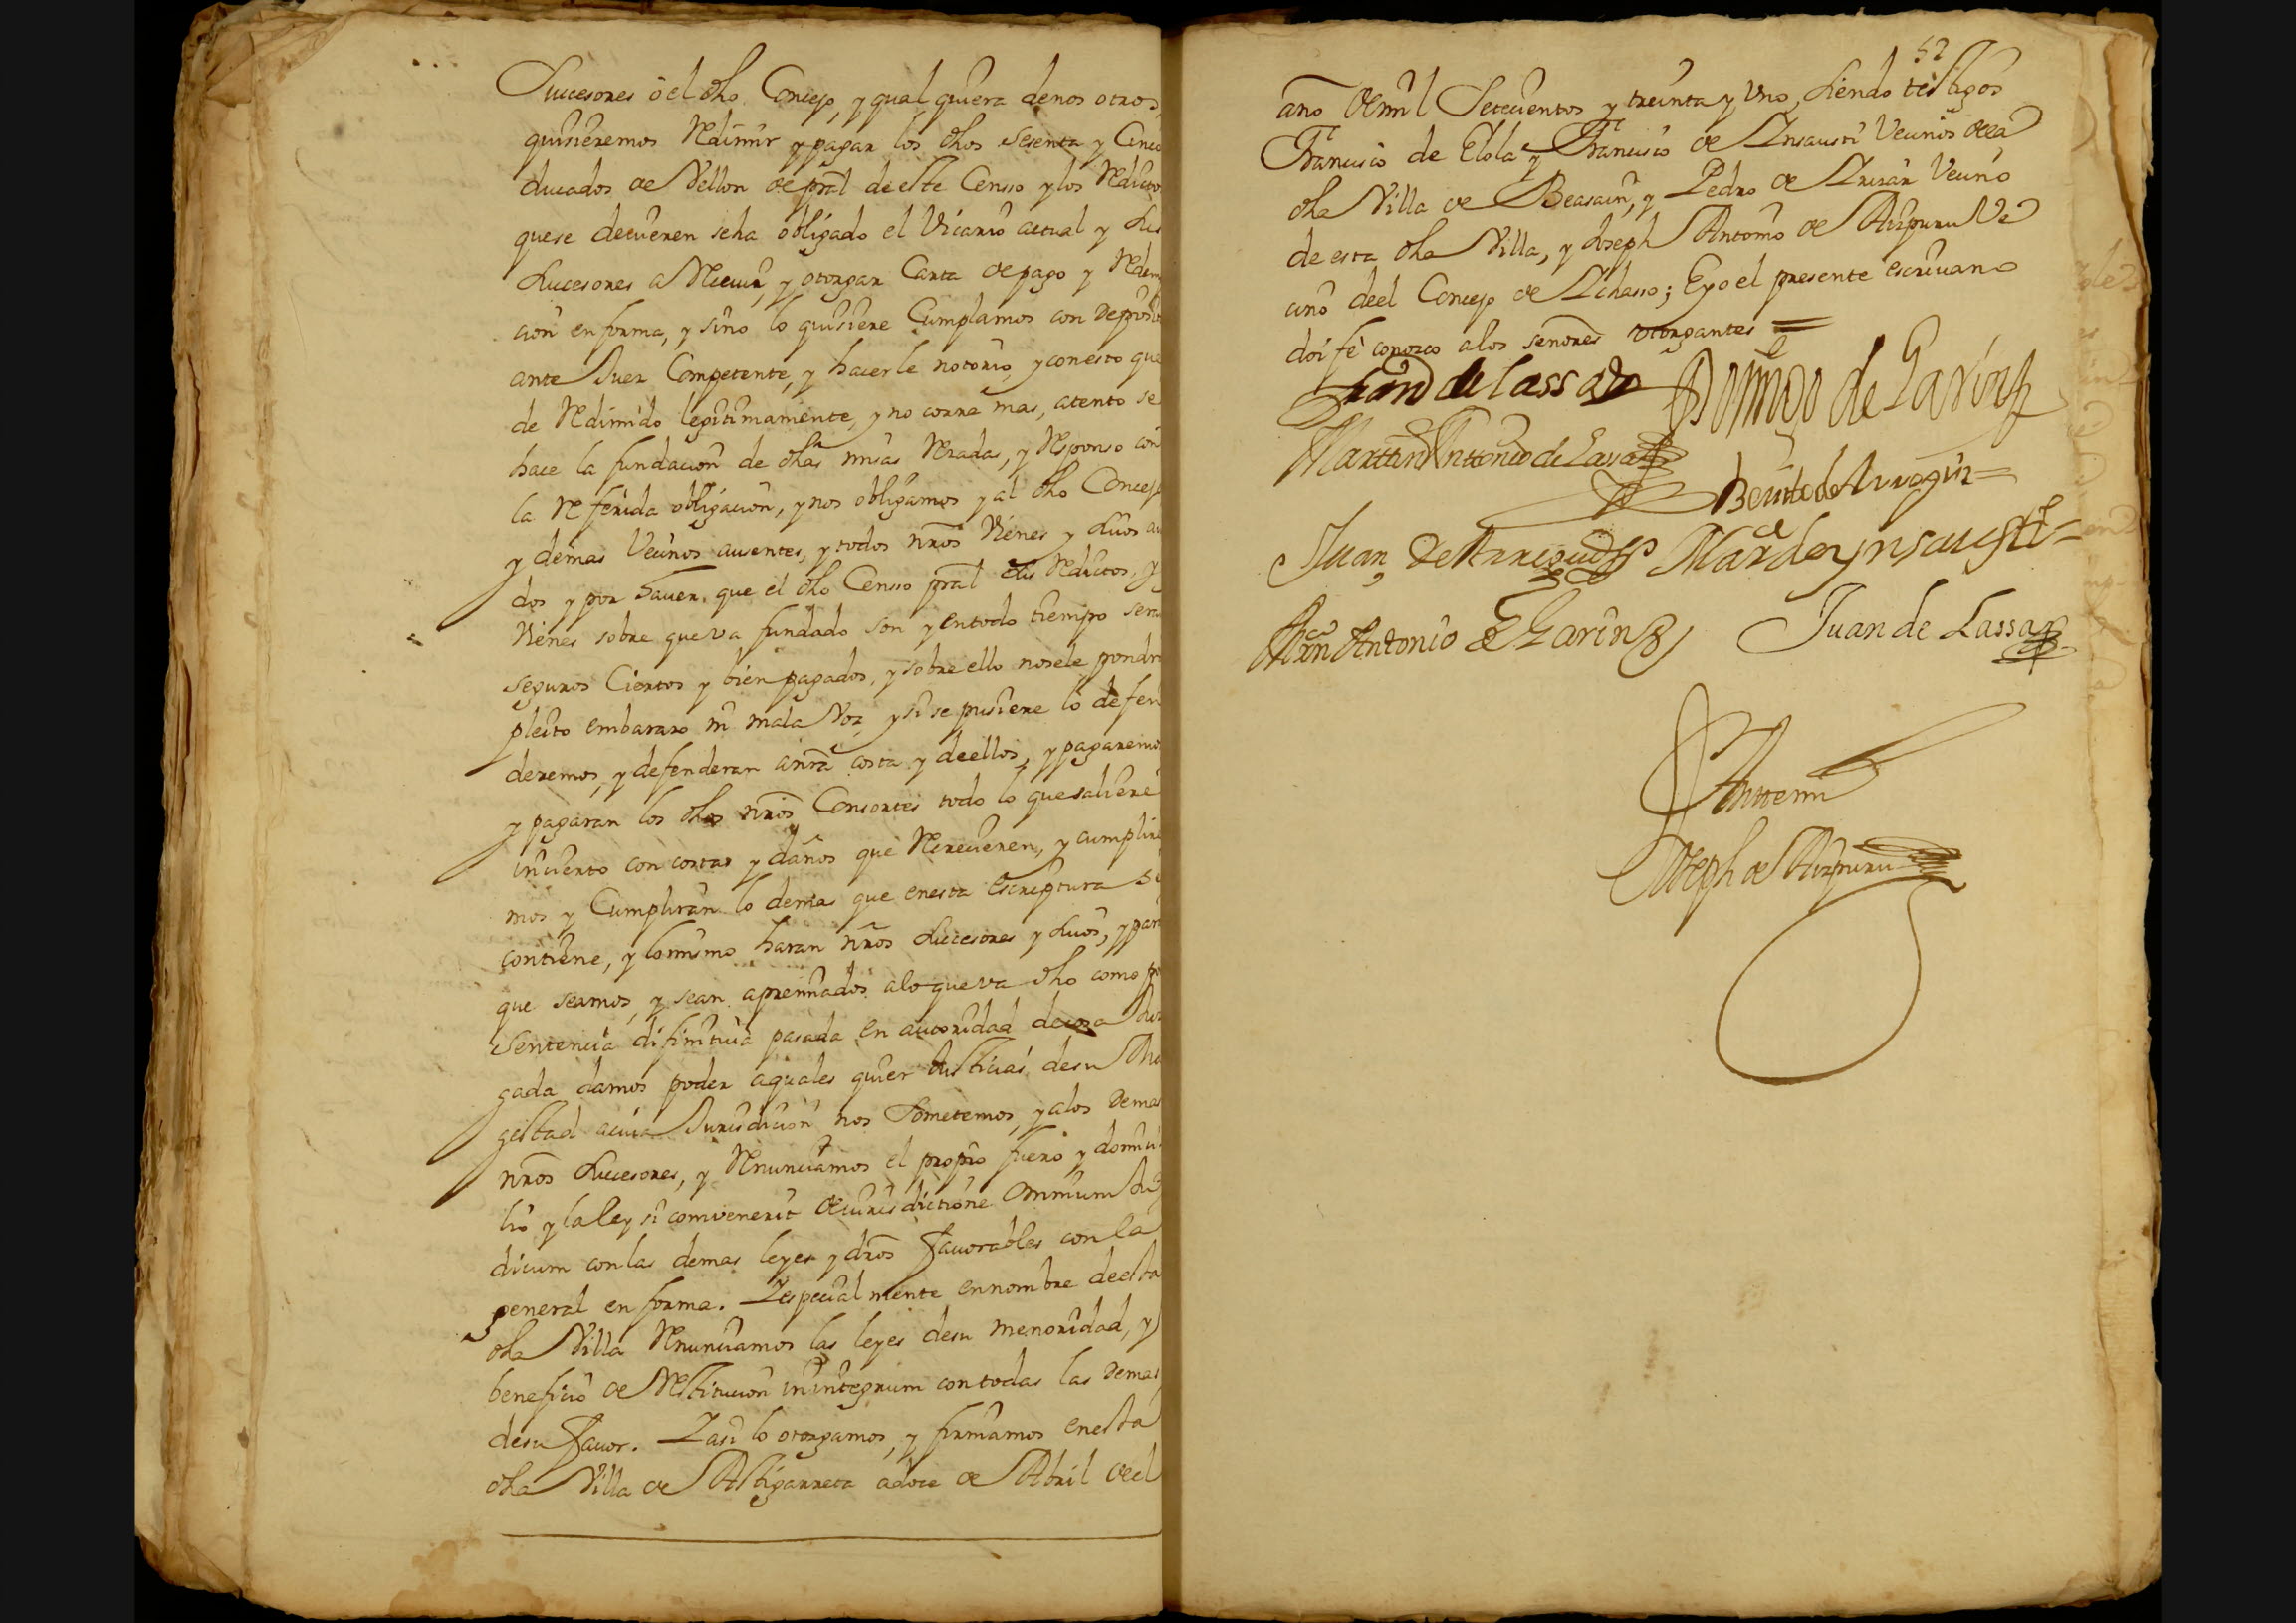 Succesores o el dho Concejo, y qual quiera de nos otros,
quisieremos Redimir y pagar los dhos sesenta y Cinco
ducados de Vellon de pral de este Censso y los Redito
que se devieren seha obligado el Vicario actual y sus
sucesores a Recivir, y otorgar Carta de pago y Reden
cion en forma, y sino lo quisiere Cumplamos con Deposito
ante Juez Competente, y hacerle notorio, y con esto que
de Redimido legitimamente, y no corra mas, atento se
hace la fundacion de dhas misas Rezadas, y Responso con
la Referida obligacion, y nos obligamos y al dho Concejo
y demas Vecinos ausentes, y todos nros Vienes y suos avi
dos y por haver, que el dho Censso pral sus Reditos, y
Vienes sobre que va fundado son y en todo tiempo sera
seguros Ciertos y bien pagados, y sobre ello no se le pondra
pleito embarazo ni mala Voz, y si se pusiere lo defen
deremos, y defenderan a nra costa y de ellos, y pagaremos
y pagaran los dhos nros Consortes todo lo que saliere
incierto con costas y daños que Recrecieren, y cumplire
mos y Cumpliran lo demas que en esta Escriptura se
contiene, y lo mismo haran nros sucesores y suos, y para
que seamos, y sean apremiados a lo que va dho como por
Sentencia difinitiva pasada en autoridad de cosa Juz
gada damos poder a quales quier Justicias de su Ma
gestad a cuia Jurisdicion nos Sometemos, y a los Demas
nros sucesores, y Renunciamos el propio fuero y domici
lio y la ley si convenerit de iurisdictione Omnium Ju
dicum con las demas leyes y dros favorables con la
general en forma. Y especial mente en nombre de esta
dha Villa Renunciamos las leyes de su menoridad, y
beneficio de Restitucion in integrum con todas las Demas
de su favor. Y asi lo otorgamos, y firmamos en esta
dha Villa de Astigarreta a doce de Abril de el
52
año de mil Setecientos y treinta y Uno, siendo testigos
Francisco de Elola y Francisco de Insausti Vecinos de la
dha Villa de Beasain, y Pedro de Irizar Vecino
de esta dha Villa, y Joseph Antonio de Aizpuru Ve
cino de el Concejo de Ichasso; E yo el presente escrivano
doi fe conozco a los señores otorgantes =
Juan de Lassa Domingo de Garin
Martin Antonio de Lassa
Benito de Arregui =
Juan De Arregui Mar de ynsausti =
Antonio de Garin Juan de Lassa
Antte mi
Joseph de Aizpuru